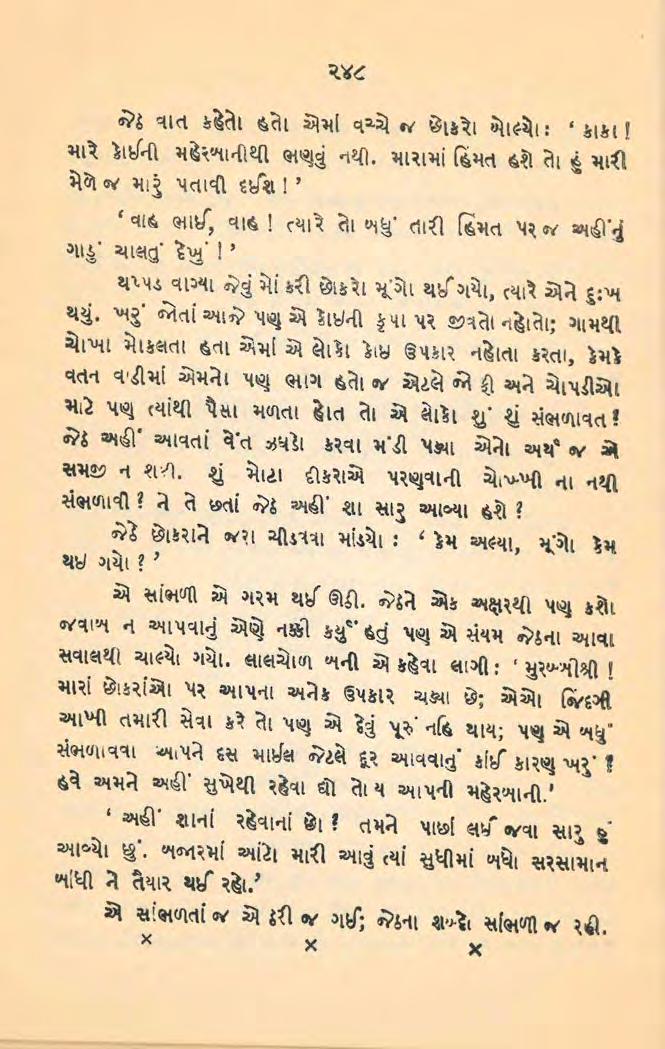 ૨૪૮
જેઠ વાત કહેતો હતો એમાં વચ્ચે જ છોકરો બોલ્યો: ‘કાકા!
મારે કોઈની મહેરબાનીથી ભણવું નથી. મારામાં હિંમત હશે તો હું મારી
મેળે જ મારું પતાવી દઈશ!’
‘વાહ ભાઈ, વાહ! ત્યારે તો બધું તારી હિંમત પર જ અહીંનું
ગાડું ચાલતું દેખું!’
થપ્પડ વાગ્યા જેવું મોં કરી છોકરો મૂંગો થઈ ગયો, ત્યારે એને દુઃખ
થયું. ખરું જોતાં આજે પણ એ કોઈની કૃપા પર જીવતો નહોતો; ગામથી
ચોખા મોકલતા હતા એમાં એ લોકો કોઇ ઉપકાર નહોતા કરતા, કેમકે
વતન વાડીમાં એમનો પણ ભાગ હતો જ એટલે જો ફી અને ચોપડીઓ
માટે પણ ત્યાંથી પૈસા મળતા હોત તો એ લોકો શું શું સંભળાવત?
જેઠ અહીં આવતાં વેંત ઝઘડો કરવા મંડી પડ્યા એનો અર્થ જ એ
સમજી ન શકી. શું મોટા દીકરાએ પરણવાની ચોખ્ખી ના નથી
સંભળાવી? ને તે છતાં જેઠ અહીં શા સારુ આવ્યા હશે?
જેઠે છોકરાને જરા ચીડવવા માંડ્યો: ‘કેમ અલ્યા, મૂંગો કેમ
થઇ ગયો?’
એ સાંભળી એ ગરમ થઈ ઊઠી. જેઠને એક અક્ષરથી પણ કશો
જવાબ ન આપવાનું એણે નક્કી કર્યું હતું પણ એ સંયમ જેઠના આવા
સવાલથી ચાલ્યો ગયો. લાલચોળ બની એ કહેવા લાગી: ‘મુરબ્બીશ્રી!
મારાં છોકરાંઓ પર આપના અનેક ઉપકાર ચડ્યા છે; એઓ જિંદગી
આખી તમારી સેવા કરે તો પણ એ દેવું પૂરું નહિ થાય; પણ એ બધું
સંભળાવવા આપને દસ માઇલ જેટલે દૂર આવવાનું કાંઈ કારણ ખરું?
હવે અમને અહીં સુખેથી રહેવા દ્યો તોય આપની મહેરબાની.’
‘અહીં શાનાં રહેવાનાં છો? તમને પાછાં લઈ જવા સારુ હું
આવ્યો છું. બજારમાં આંટો મારી આવું ત્યાં સુધીમાં બધો સરસામાન
બાંધી ને તૈયાર થઈ રહો.’
એ સાંભળતાં જ એ ઠરી જ ગઈ; જેઠના શબ્દો સાંભળી જ રહી.
× × ×